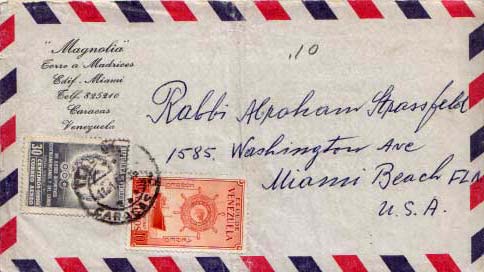 "Magnolia"
Torre a Madrices
Edif. Miami
Telf. 825210
Caracas
Venezuela
.10
Rabbi Abraham Strassfeld
1585 Washington Ave
Miami Beach FLA
U.S.A.
30
CARACAS
VENEZUELA